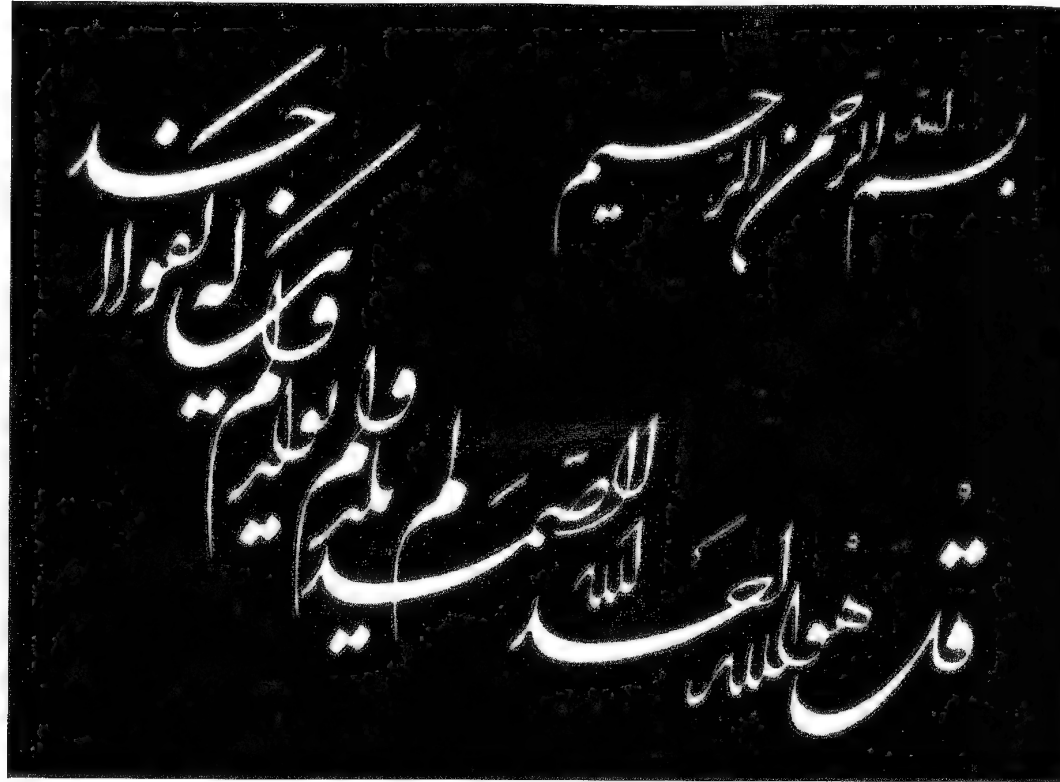 بسم الله الرحمن الرحيم
قل هو الله احد
الله الصمد
لم يلد
ولم يولد
ولم يكن له كفوا احد